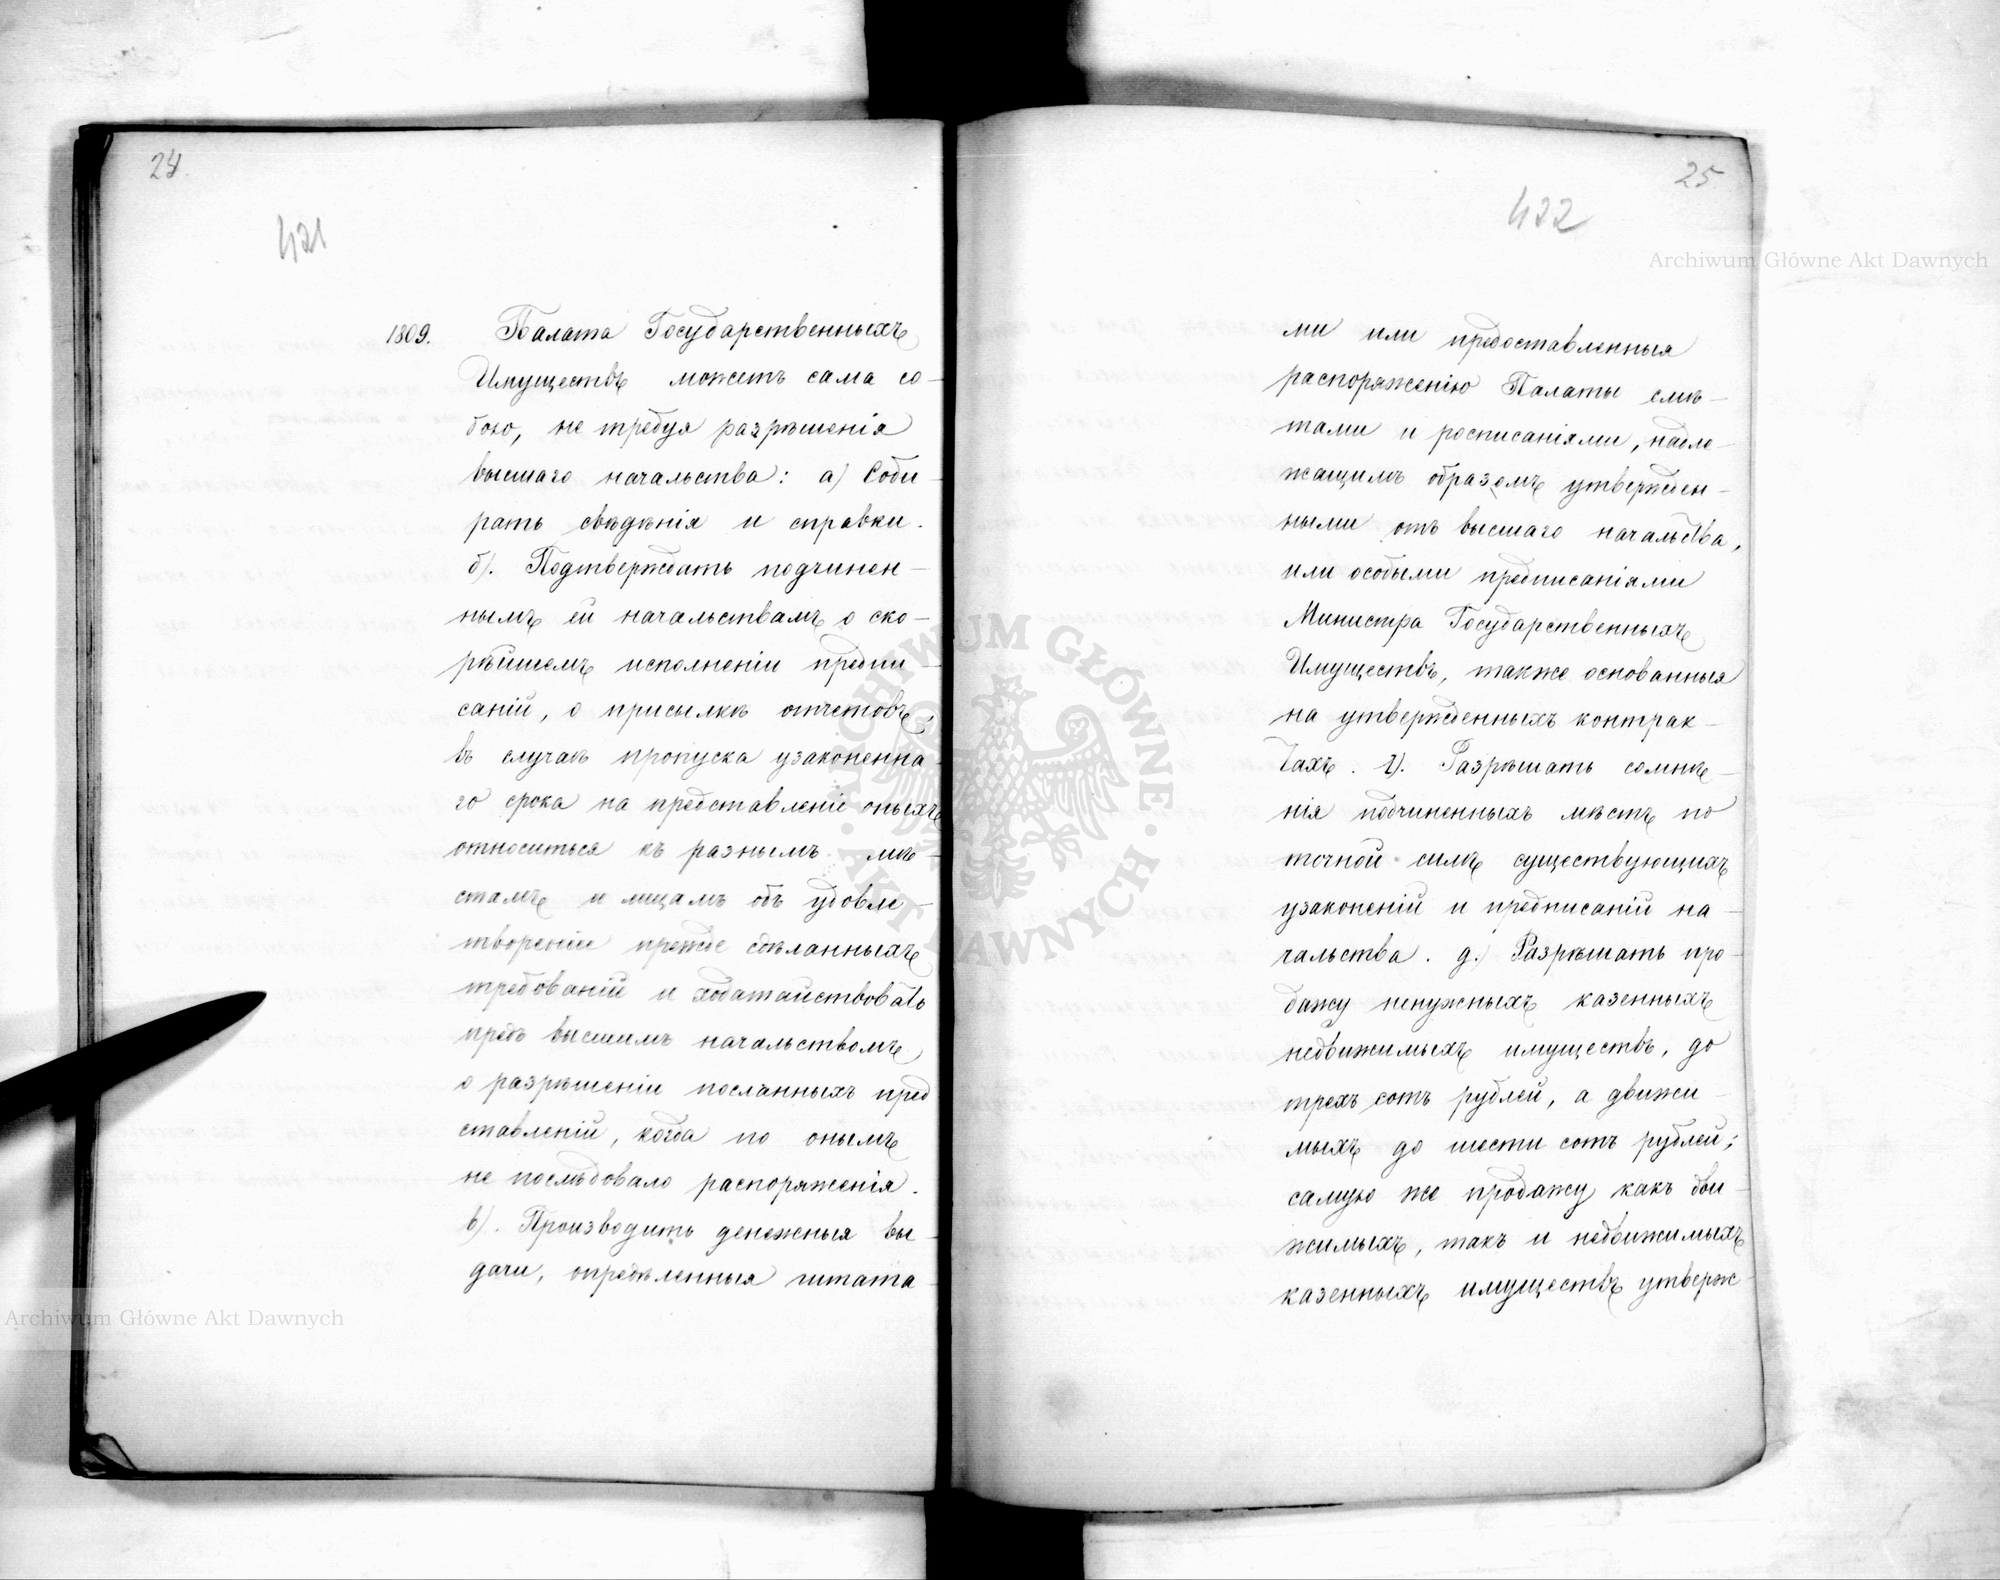 24.
421
1809. Палата Государственныхъ
Имуществъ можетъ сама со-
бою, не требуя разрѣшенія
высшаго начальства: а) Соби-
рать свѣдѣнія и справки.
б). Подтверждать подчинен-
нымъ ей начальствамъ о ско-
рѣйшемъ исполненіи предпи-
саній, о присылкѣ отчетовъ,
въ случаѣ пропуска узаконенна-
го срока на представленіе оныхъ,
относиться къ разнымъ мѣ-
стамъ и лицамъ объ удовле-
твореніи прежде сдѣланныхъ
требованій и ходатайствовать
предъ высшимъ начальствомъ
о разрѣшеніи посланныхъ пред
ставленій, когда по онымъ
не послѣдовало распоряженія.
в). Производить денежныя вы-
дачи, опредѣленныя штата-
25
422
ми или предоставленныя
распоряженію Палаты смѣ-
тами и росписаніями, надле-
жащимъ образомъ утвержден-
ными отъ высшаго начальства,
или особыми предписаніями
Министра Государственныхъ
Имуществъ, также основанныя
на утвержденныхъ контрак-
тахъ. г). Разрѣшать сомнѣ-
нія подчиненныхъ мѣстъ по
точной силѣ существующихъ
узаконеній и предписаній на-
чальства. д.) Разрѣшать про-
дажу ненужныхъ казенныхъ
недвижимыхъ имуществъ, до
трехъ сотъ рублей, а движи-
мыхъ до шести сотъ рублей;
самую же продажу какъ дви-
жимыхъ, такъ и недвижимыхъ
казенныхъ имуществъ утверж-
Archiwum Główne Akt Dawnych
ARCHIWUM GŁÓWNE · AKT DAWNYCH ·
Archiwum Główne Akt Dawnych